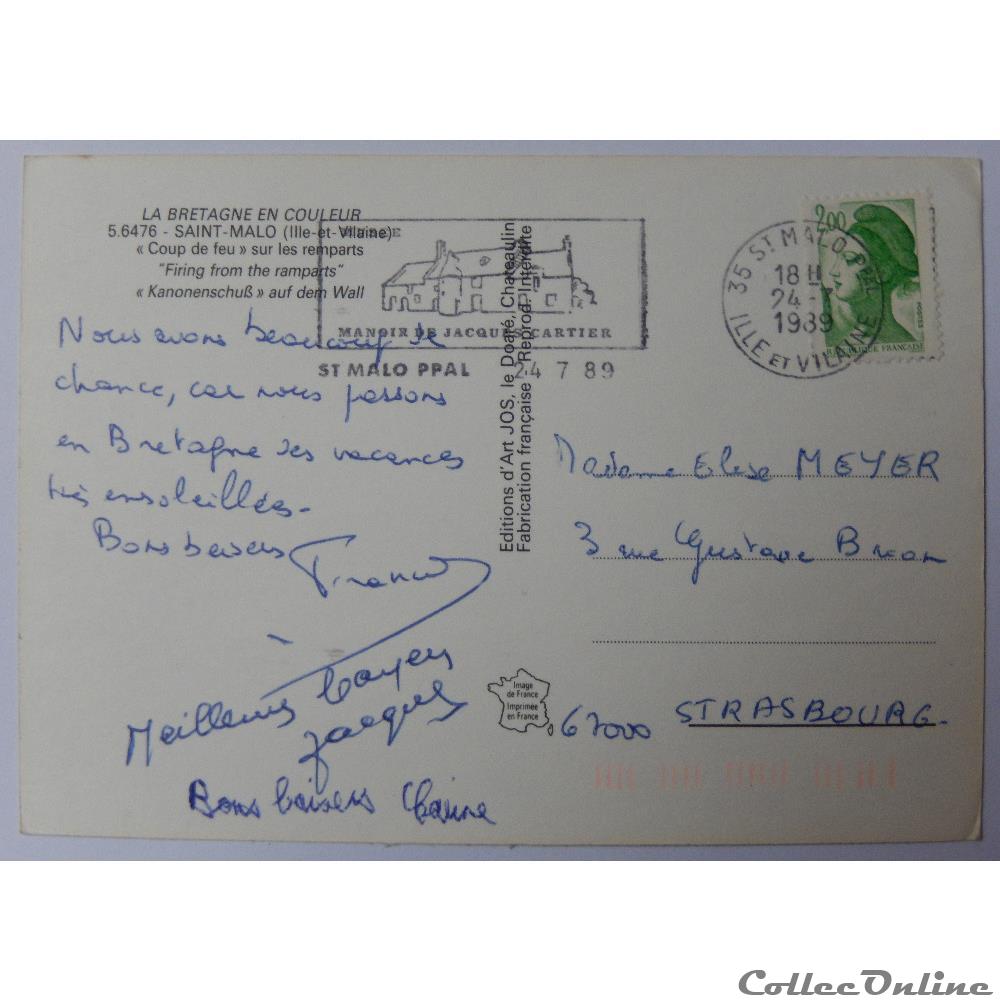 LA BRETAGNE EN COULEUR
5.6476 - SAINT-MALO (Ille-et-Vilaine)
« Coup de feu » sur les remparts
"Firing from the ramparts"
« Kanonenschuß » auf dem Wall
MUSEE
MANOIR DE JACQUES CARTIER
ST MALO PPAL 24 7 89
35 ST MALO PPAL
18 H
24 - 7
1989
ILLE ET VILAINE
2,00
POSTES
REPUBLIQUE FRANÇAISE
Nous avons beaucoup de
chance, car nous passons
en Bretagne des vacances
très ensoleillées.
Bons baisers
Meilleurs
Jacques
Bons baisers
Editions d'Art JOS, le Doaré, Chateaulin
Fabrication française - Reprod. Interdite
Image
de France
Imprimée
en France
Madame Elise MEYER
3 rue Gustave Brion
67000 STRASBOURG.
CollecOnline